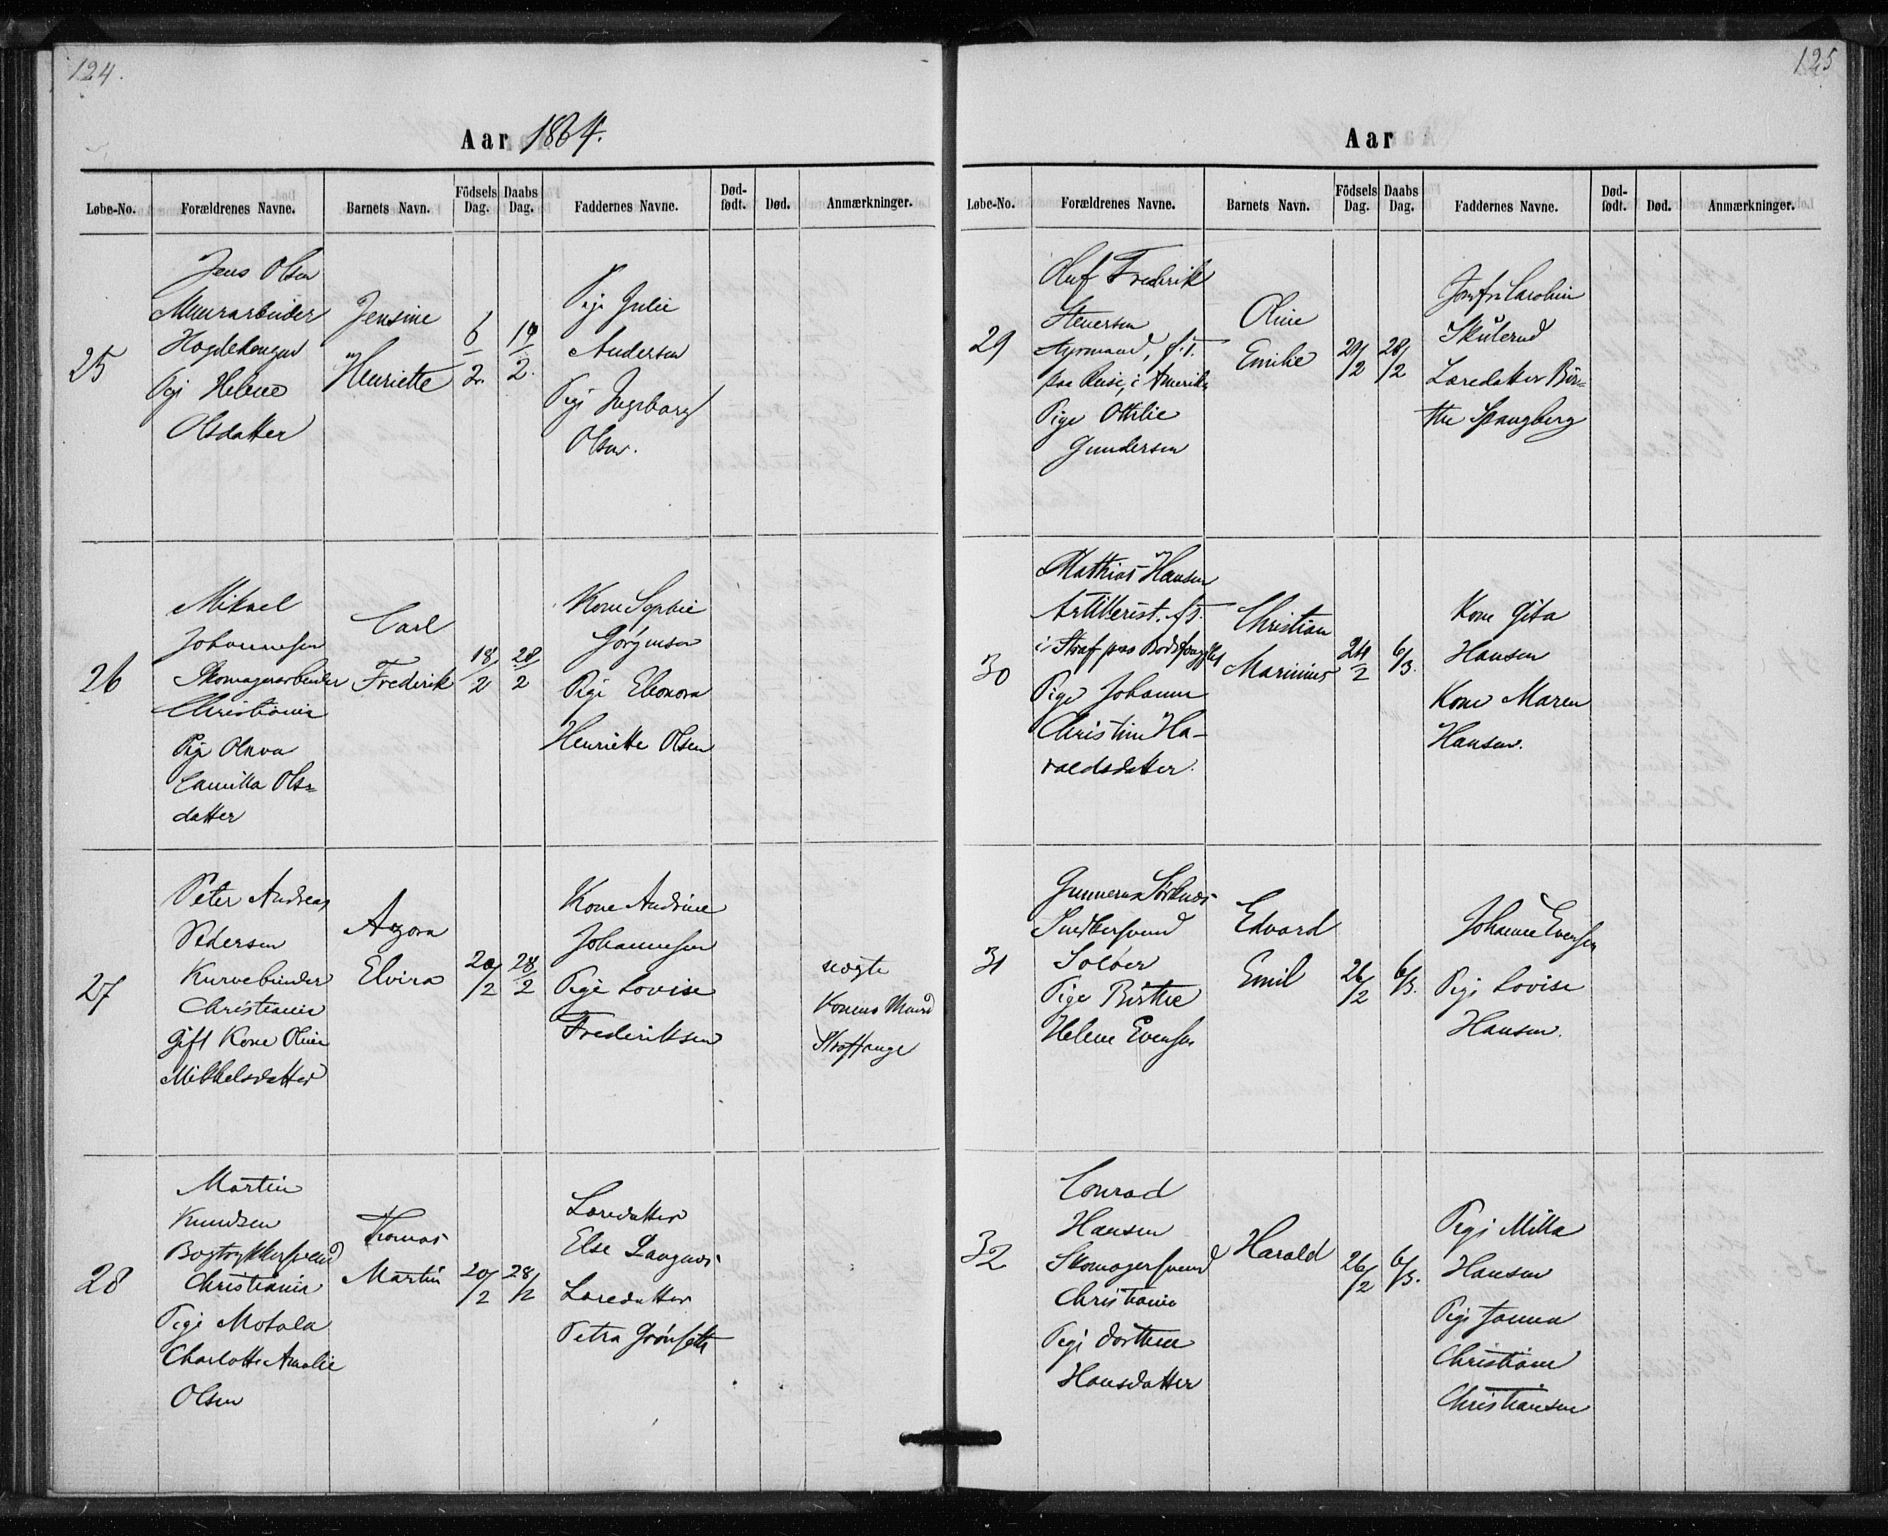 124.
Aar 1864.
Løbe-No. Forældrenes Navne. Barnets Navn. Födsels Dag. Daabs Dag. Faddernes Navne. Död-födt. Død. Anmærkninger.
25
Jens Olsen
Murarbeider
Pige Helene
Olsdatter
Jensine
Henriette
6/2.
19/2.
Pige Julie
Andersen
Pige Ingeborg
Olsen.
26
Mikael
Johannesen
Skomagerarbeider
Christiania
Pige
Camilla Ols=
datter
Carl
Frederik
18/2
28/2
Kone Sophie
Jørgensen
Pige Eleonora
Henriette Olsen
27
Peter Andreas
Pedersen
Kurvebinder
Christiania
Gift Kone Oline
Mikkelsdatter
Elvira
20/2
28/2
Kone Andrine
Johannesen
Pige Lovise
Frederiksen
ægte
Konens Mand
Straffange
28
Martin
Knudsen
Bogtrykkersvend
Christiania
Pige Motala
Charlotte Amalie
Olsen
Thomas
Martin
20/2
28/2
Læredatter
Else Langnæs
Læredatter
Petra Grønseth
125
Aar
Løbe-No. Forældrenes Navne. Barnets Navn. Födsels Dag. Daabs Dag. Faddernes Navne. Död-födt. Død. Anmærkninger.
29
Oluf Frederik
Stenersen
Styrmand, f. T.
paa Reise, i Amerika
Pige Othilie
Gundersen
Oline
Emilie
21/2
28/2
Jomfru Caroline
Skulerud
Læredatter Bir=
the Spangberg
30
Mathias Hansen
Artillerist. f. T.
i Straf paa Bodsfængslet
Pige Johanne
Christine Ha-
raldsdatter.
Christian
Marinius
24/2
6/3.
Kone Gita
Hansen
Kone Maren
Hansen.
31
Snedkersvend
Soløer
Pige Birthe
Helene Evensen
Edvard
Emil
26/2
6/3.
Johanne Evensen
Pige Lovise
Hansen.
32
Conrad
Hansen
Skomagersvend
Christiania
Pige Dorthea
Hansdatter
Harald
26/2
6/3.
Pige Milla
Hansen
Pige Janna
Christiane
Christiansen